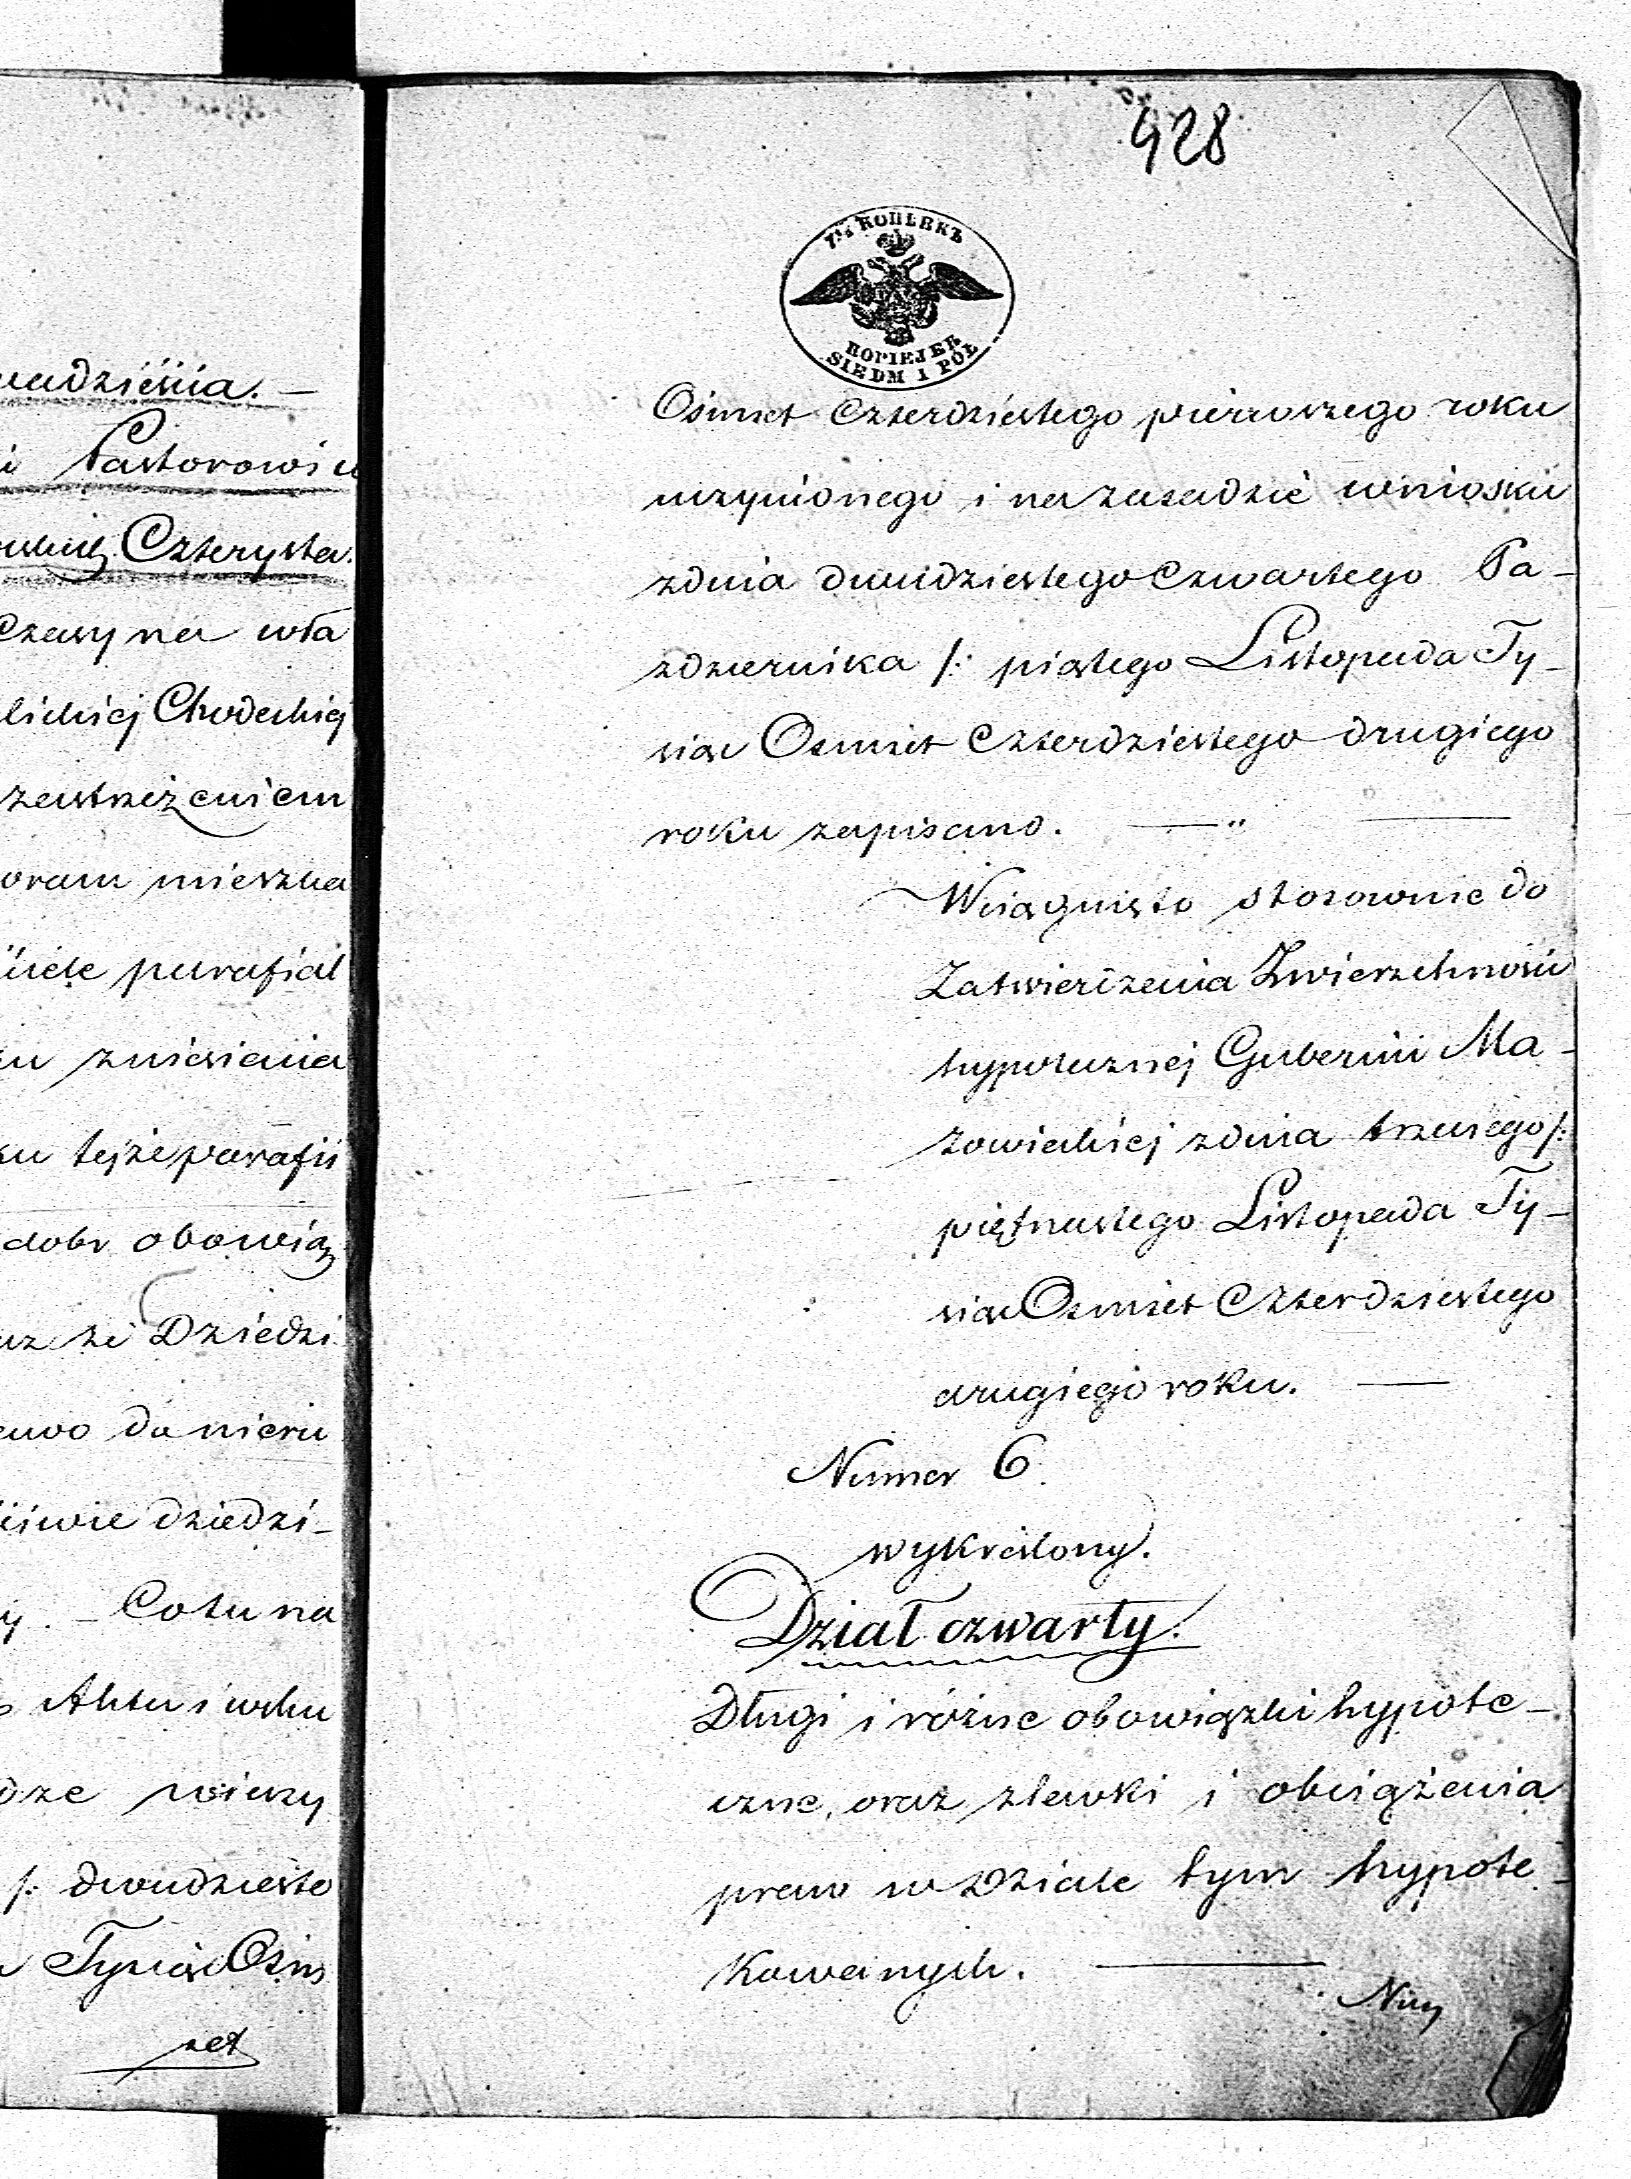 wadzienia. —
i Pastorowi u
Czterysta.
czasy na wła
lickiej Chodeckiej
zastrzeżeniem
oram mieszka
parafial
zniesienia
ku tejże parafii
dobr obowiąz
że Dziedzi
dziedzi-
y. — Co tu na
Aktu i wsku
dze wieczy
/: dwudzieste
Tysiąc Ośm
set
428
7½ КОПѢЕКЪ
KOPIEJEK
SIEDM I PÓŁ
Ośmset czterdziestego pierwszego roku
uczynionego i na zasadzie wniosku
z dnia dwudziestego czwartego Pa-
zdziernika /: piątego Listopada Ty-
siąc Osmset czterdziestego drugiego
roku zapisano. — „ —
Wciągnięto stosownie do
Zatwierdzenia Zwierzchności
hypotecznej Gubernii Ma-
zowieckiej z dnia trzeciego /:
piętnastego Listopada Ty-
siąc Osmset czterdziestego
drugiego roku. —
Numer 6.
wykreślony.
Dział czwarty.
Długi i różne obowiązki hypote-
czne, oraz zlewki i obciążenia
praw w Dziale tym hypote-
kowanych. —